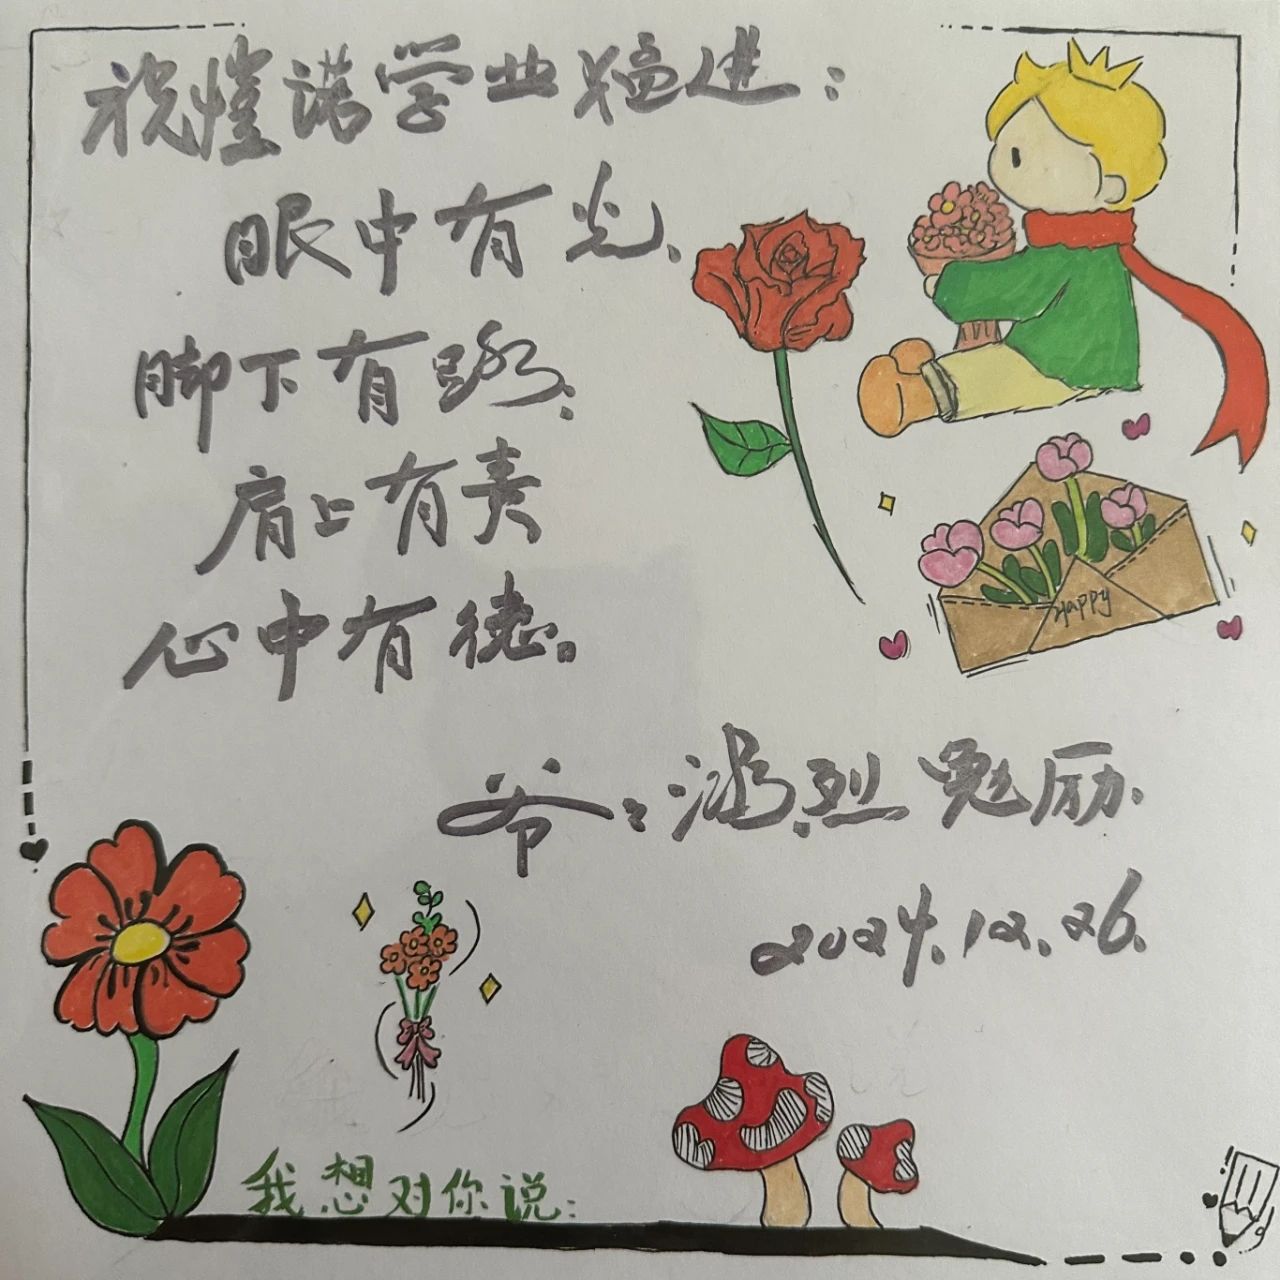 祝恺诺学业猛进：
眼中有光、
脚下有路、
肩上有责
心中有德。
爷：鸿烈 勉励.
2024.12.26.
Happy
我想对你说：